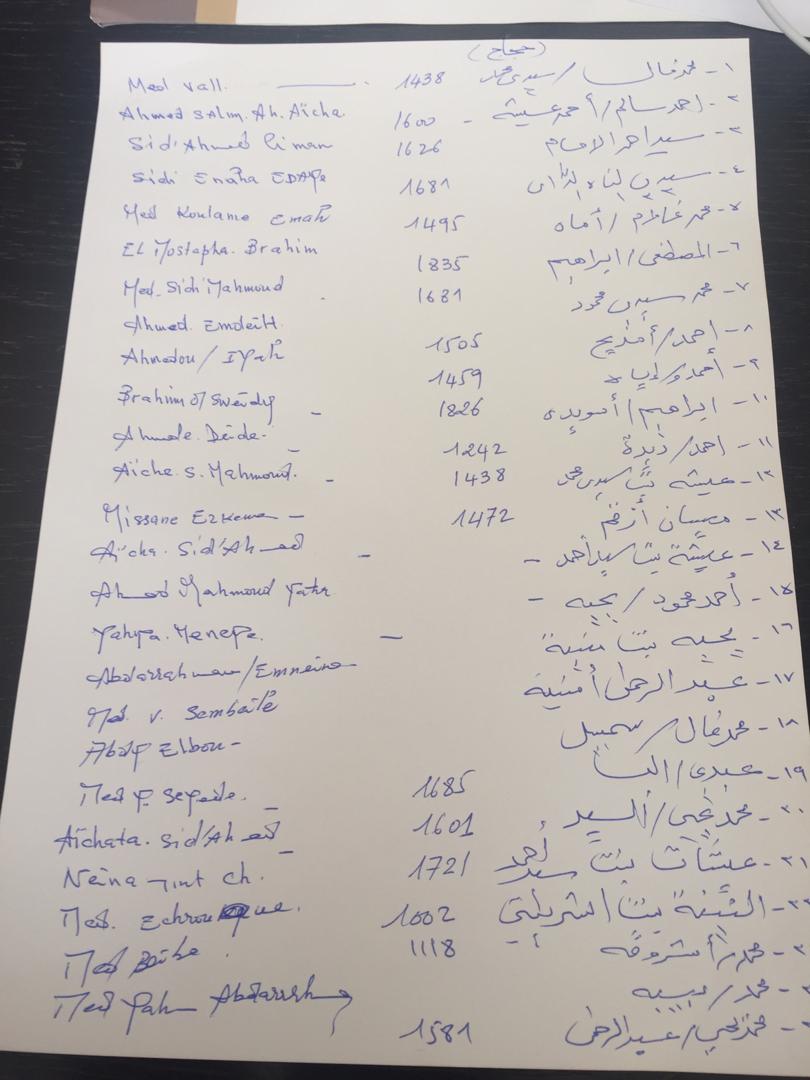 (حجاج)
Med vall. 1438 ١- محمد فال / سيدي محمد
Ahmed Salim. Ah. Aïcha 1600 - ٢- احمد سالم / أحمد عيشة
Sid'Ahmed liman 1626 ٣- سيد احمد الامام
Sidi 1681 ٤- سيدي
Med Koulame Emah 1495 ٥- محمد غلام / أماه
EL Mostapha. Brahim 1835 ٦- المصطفى / ابراهيم
Med. Sidi Mahmoud 1681 ٧- محمد سيدي محمود
Ahmed. 1505 ٨- احمد / أمديح
Ahmedou / Iyah 1459 ٩- أحمدو / إياه
Brahim 1826 ١٠- ابراهيم / أسويدي
Deide. - 1242 ١١- احمد / ديدة
Aïche. S. Mahmoud. - 1438 ١٢- عيشة بنت سيدي محمد
Missane - 1472 ١٣- ميسان أزغم
Aïcha. Sid'Ahmed - - ١٤- عيشة بنت سيد أحمد
Ahmed Mahmoud - ١٥- أحمد محمود / يحيه
Yahya. - ١٦- يحيه بنت منيه
Abdarrahman / Emneina ١٧- عبد الرحمن أمنينه
Med. v. ١٨- محمد فال / سمبيل
Abdy Elbou - ١٩- عبدي /
Med y. Seyede. - 1685 ٢٠- محمد يحيى / السيد
Aïchata. Sid'Ahmed - 1601 ٢١- عيشات بنت سيد أحمد
Neina mint ch. 1721 بنت
Med. 1002 محمد / أشروقه
Med 1118 محمد / بيبيه
Med Yah Abdarrahm 1581 محمد يحيى / عبد الرحمن